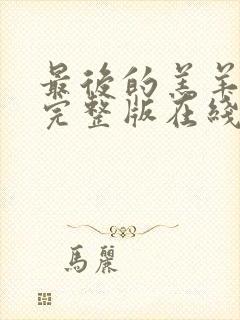 最後的羔羊
完整版在綫
馬麗